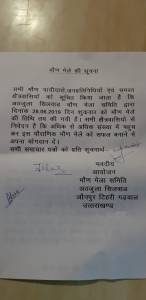 मौण मेले की सूचना
सभी मौण पानीदारों,जनप्रतिनिधियों एवं समस्त
क्षेत्रवासियों को सूचित किया जाता है कि
अठजुला सिलवाड मौण मेला समिति द्वारा
दिनांक 28.06.2019 दिन शुक्रवार को मौण मेले
की तिथि तय की गयी है। सभी क्षेत्रवासियों से
निवेदन है कि अधिक से अधिक संख्या में पहुंच
कर इस पौराणिक मौण मेले को सफल बनाने में
अपना योगदान दें।
सभी समाचार पत्रों को प्रति सूचनार्थ
भवदीय
आयोजन
मौण मेला समिति
अठजुला सिलवाड
जौनपुर टिहरी गढ़वाल
उत्तराखण्ड